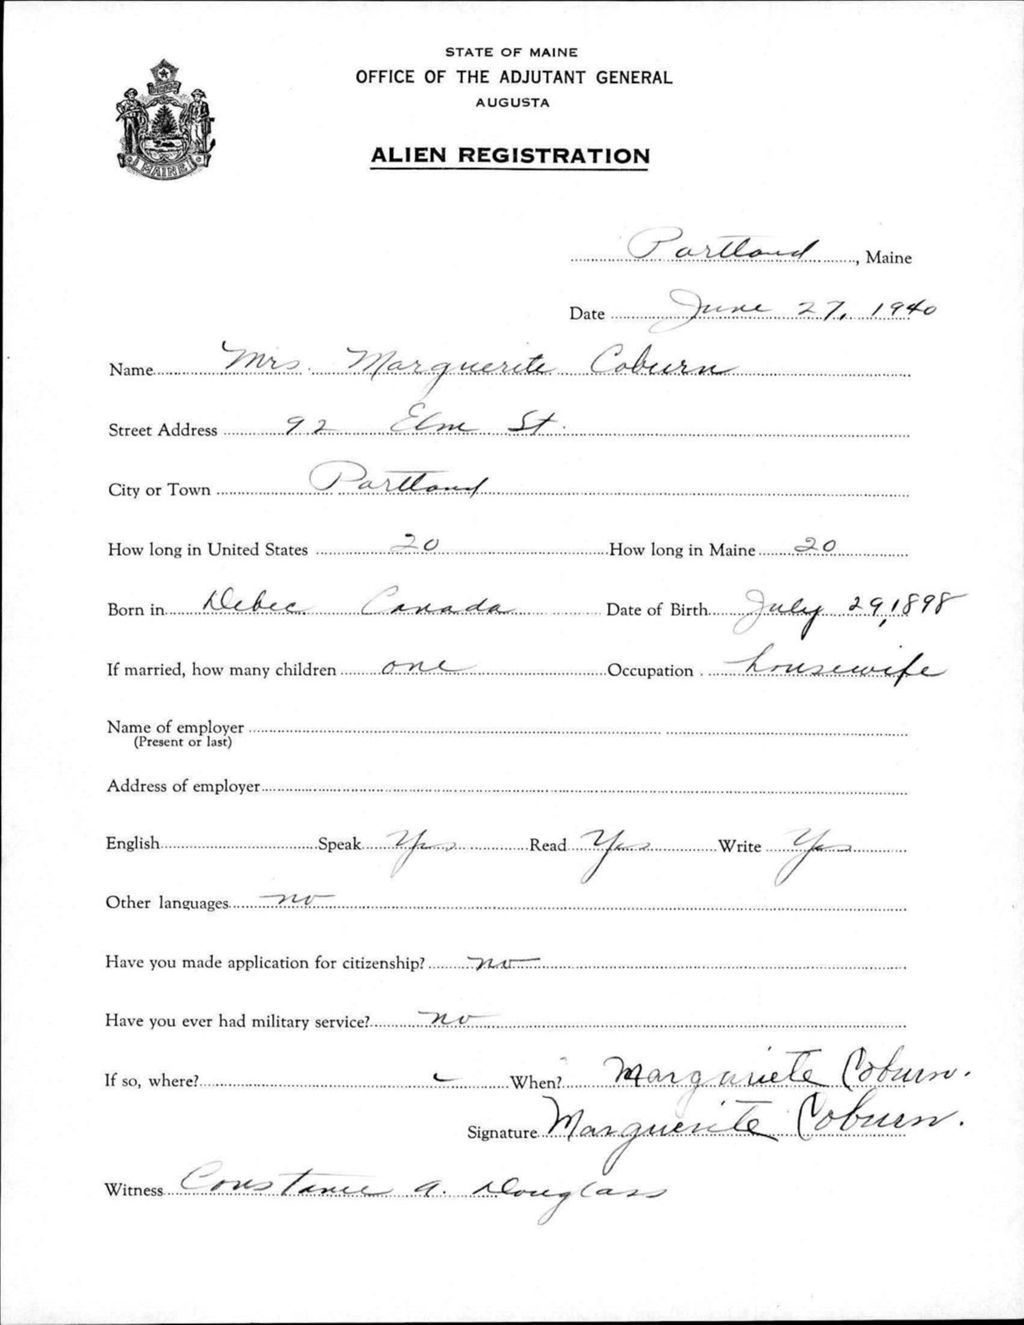 STATE OF MAINE
OFFICE OF THE ADJUTANT GENERAL
AUGUSTA
ALIEN REGISTRATION
MAINE
Portland, Maine
Date June 27, 1940
Name Mrs. Marguerite Coburn
Street Address 92 Elm St.
City or Town Portland
How long in United States 20 How long in Maine 20
Born in Debec Canada Date of Birth July 29, 1898
If married, how many children one Occupation housewife
Name of employer
(Present or last)
Address of employer
English Speak Yes Read Yes Write Yes
Other languages no
Have you made application for citizenship? no
Have you ever had military service? no
If so, where? When? Margariete Coburn.
Signature Marguerite Coburn.
Witness Constance A. Douglass